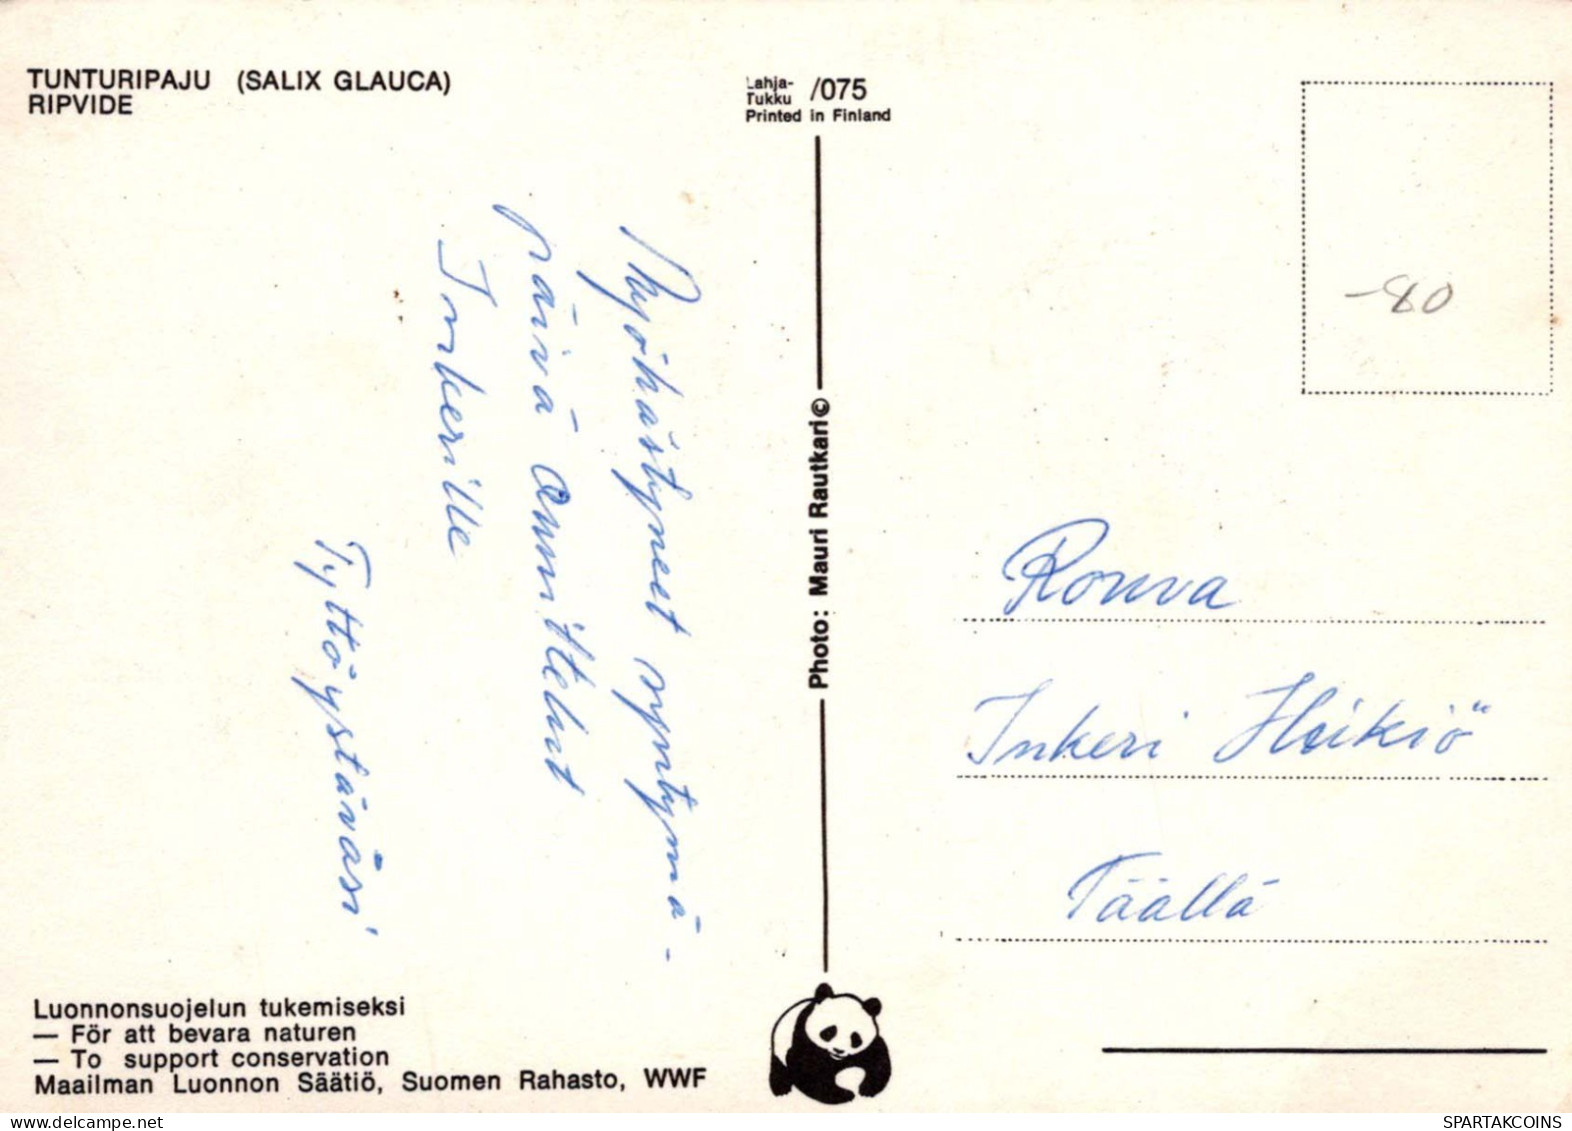 TUNTURIPAJU (SALIX GLAUCA)
RIPVIDE
Lahja-
Tukku /075
Printed in Finland
Myöhästyneet syntymä-
päivä onnittelut
Inkerille
Tyttöystäväsi
Photo: Mauri Rautkari©
-80
Rouva
Inkeri Heikiö
Täällä
Luonnonsuojelun tukemiseksi
— För att bevara naturen
— To support conservation
Maailman Luonnon Säätiö, Suomen Rahasto, WWF
SPARTAKCOINS